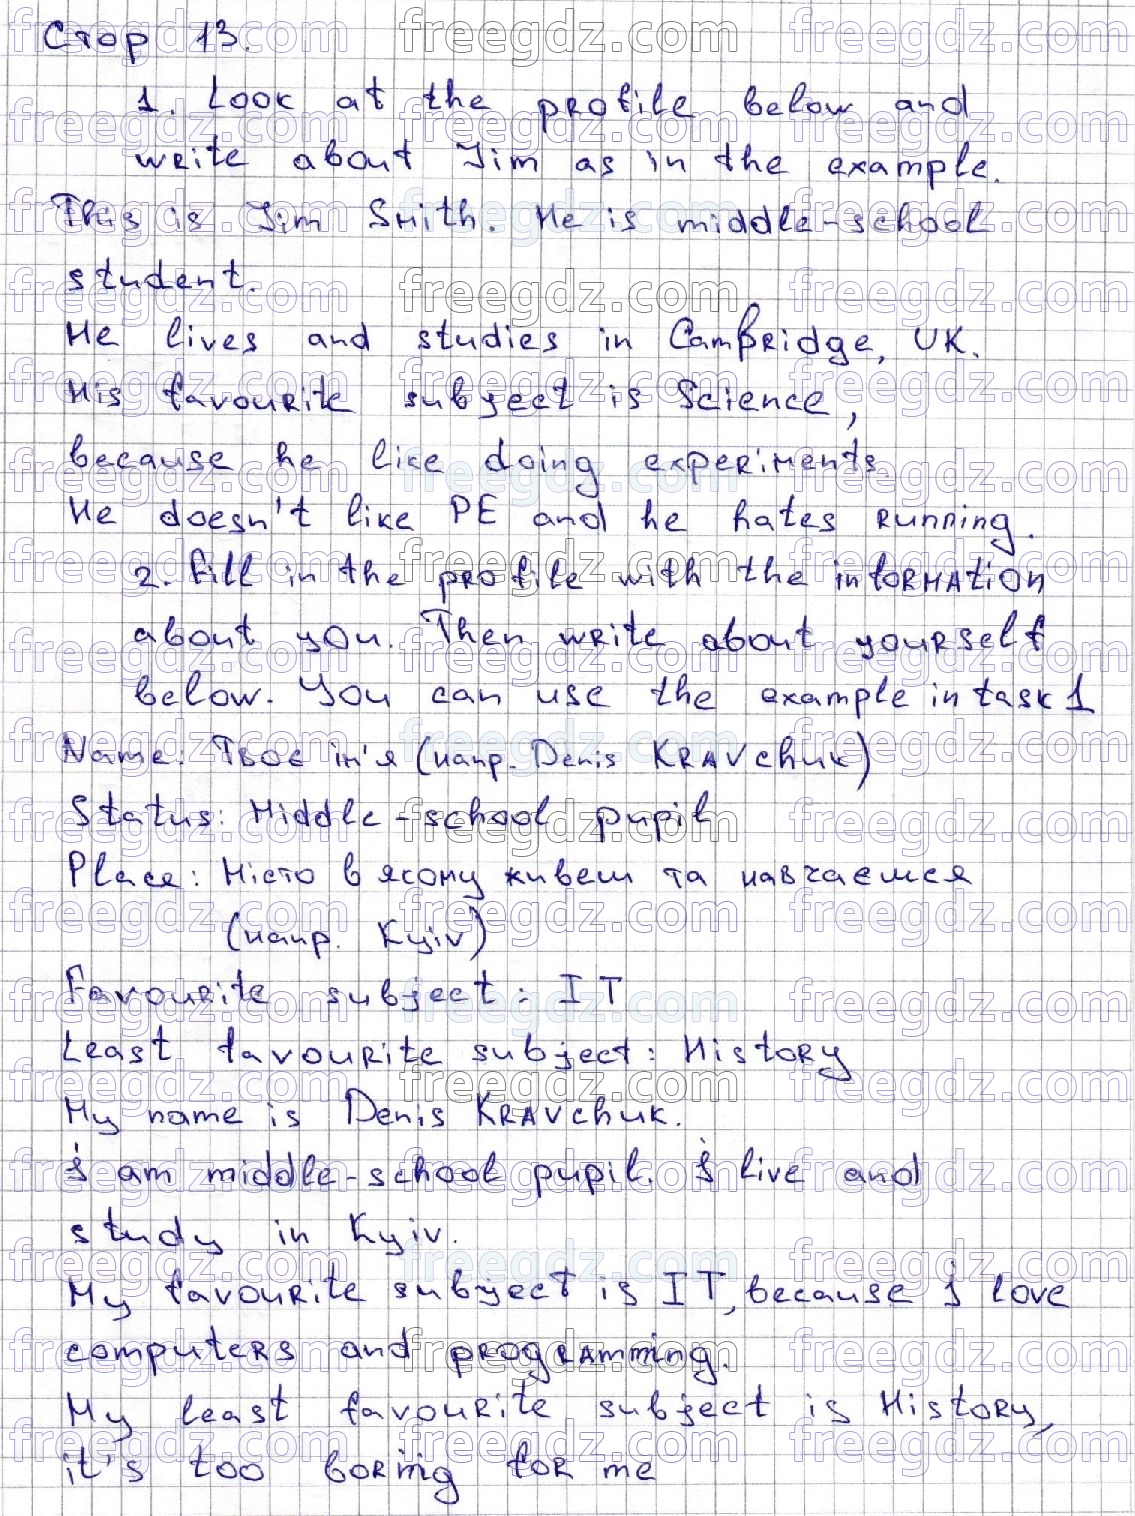 Стор 13.
1. Look at the profile below and
write about Jim as in the example.
This is Jim Smith. He is middle-school
student.
He lives and studies in Cambridge, UK.
His favourite subject is Science,
because he like doing experiments.
He doesn't like PE and he hates running.
2. Fill in the profile with the information
about you. Then write about yourself
below. You can use the example in task 1
Name: Твоє ім'я (напр. Denis Kravchuk)
Status: Middle-school pupil
Place: Місто в якому живеш та навчаєшся
(напр. Kyiv)
Favourite subject: IT
Least favourite subject: History
My name is Denis Kravchuk.
I am middle-school pupil. I live and
study in Kyiv.
My favourite subject is IT, because I love
computers and programming.
My least favourite subject is History,
it's too boring for me
freegdz.com